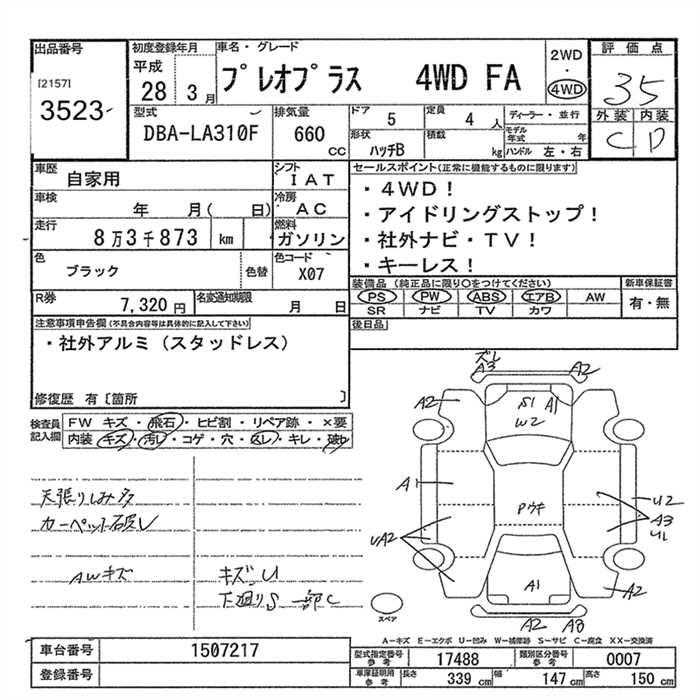 出品番号
[2157]
3523
初度登録年月
平成
28 3月
車名・グレード
プレオプラス 4WD FA
2WD
・
4WD
評価点
35
外装 内装
C D
型式
DBA-LA310F
排気量
660
CC
ドア
5
定員
4人
形状
ハッチB
積載
kg
ディーラー・並行
モデル年式 年
ハンドル 左・右
車歴
自家用
シフト
IAT
車検
年 月( 日)
冷房
AC
走行
8万3千873 km
燃料
ガソリン
色
ブラック
色替
色コード
X07
R券
7,320円
名変通知期限
月 日
セールスポイント(正常に機能するものに限ります)
・4WD!
・アイドリングストップ!
・社外ナビ・TV!
・キーレス!
装備品 (純正品に限り○をつけてください)
PS PW ABS エアB AW
SR ナビ TV カワ
新車保証書
有・無
後日品
注意事項申告欄(不具合内容等は具体的に記入して下さい)
・社外アルミ(スタッドレス)
修復歴 有〔箇所 〕
検査員記入欄
FW キズ・飛石・ヒビ割・リペア跡・×要
内装 キズ・汚レ・コゲ・穴・スレ・キレ・破レ
天張りしみ多
カーペット破レ
AWキズ
キズ、U
下廻りS 一部C
ズレ
A3 A2
A2
S1 A1
W2
A1
Pウキ
U2
A3
U1
UA2
A1
A2
A2 A3
スペア
A-キズ E-エクボ U-凹み W-補修跡 S-サビ C-腐食 XX-交換済
車台番号
1507217
登録番号
型式指定番号
参考
17488
類別区分番号
参考
0007
車庫証明用
参考
長さ
339 cm
幅
147 cm
高さ
150 cm